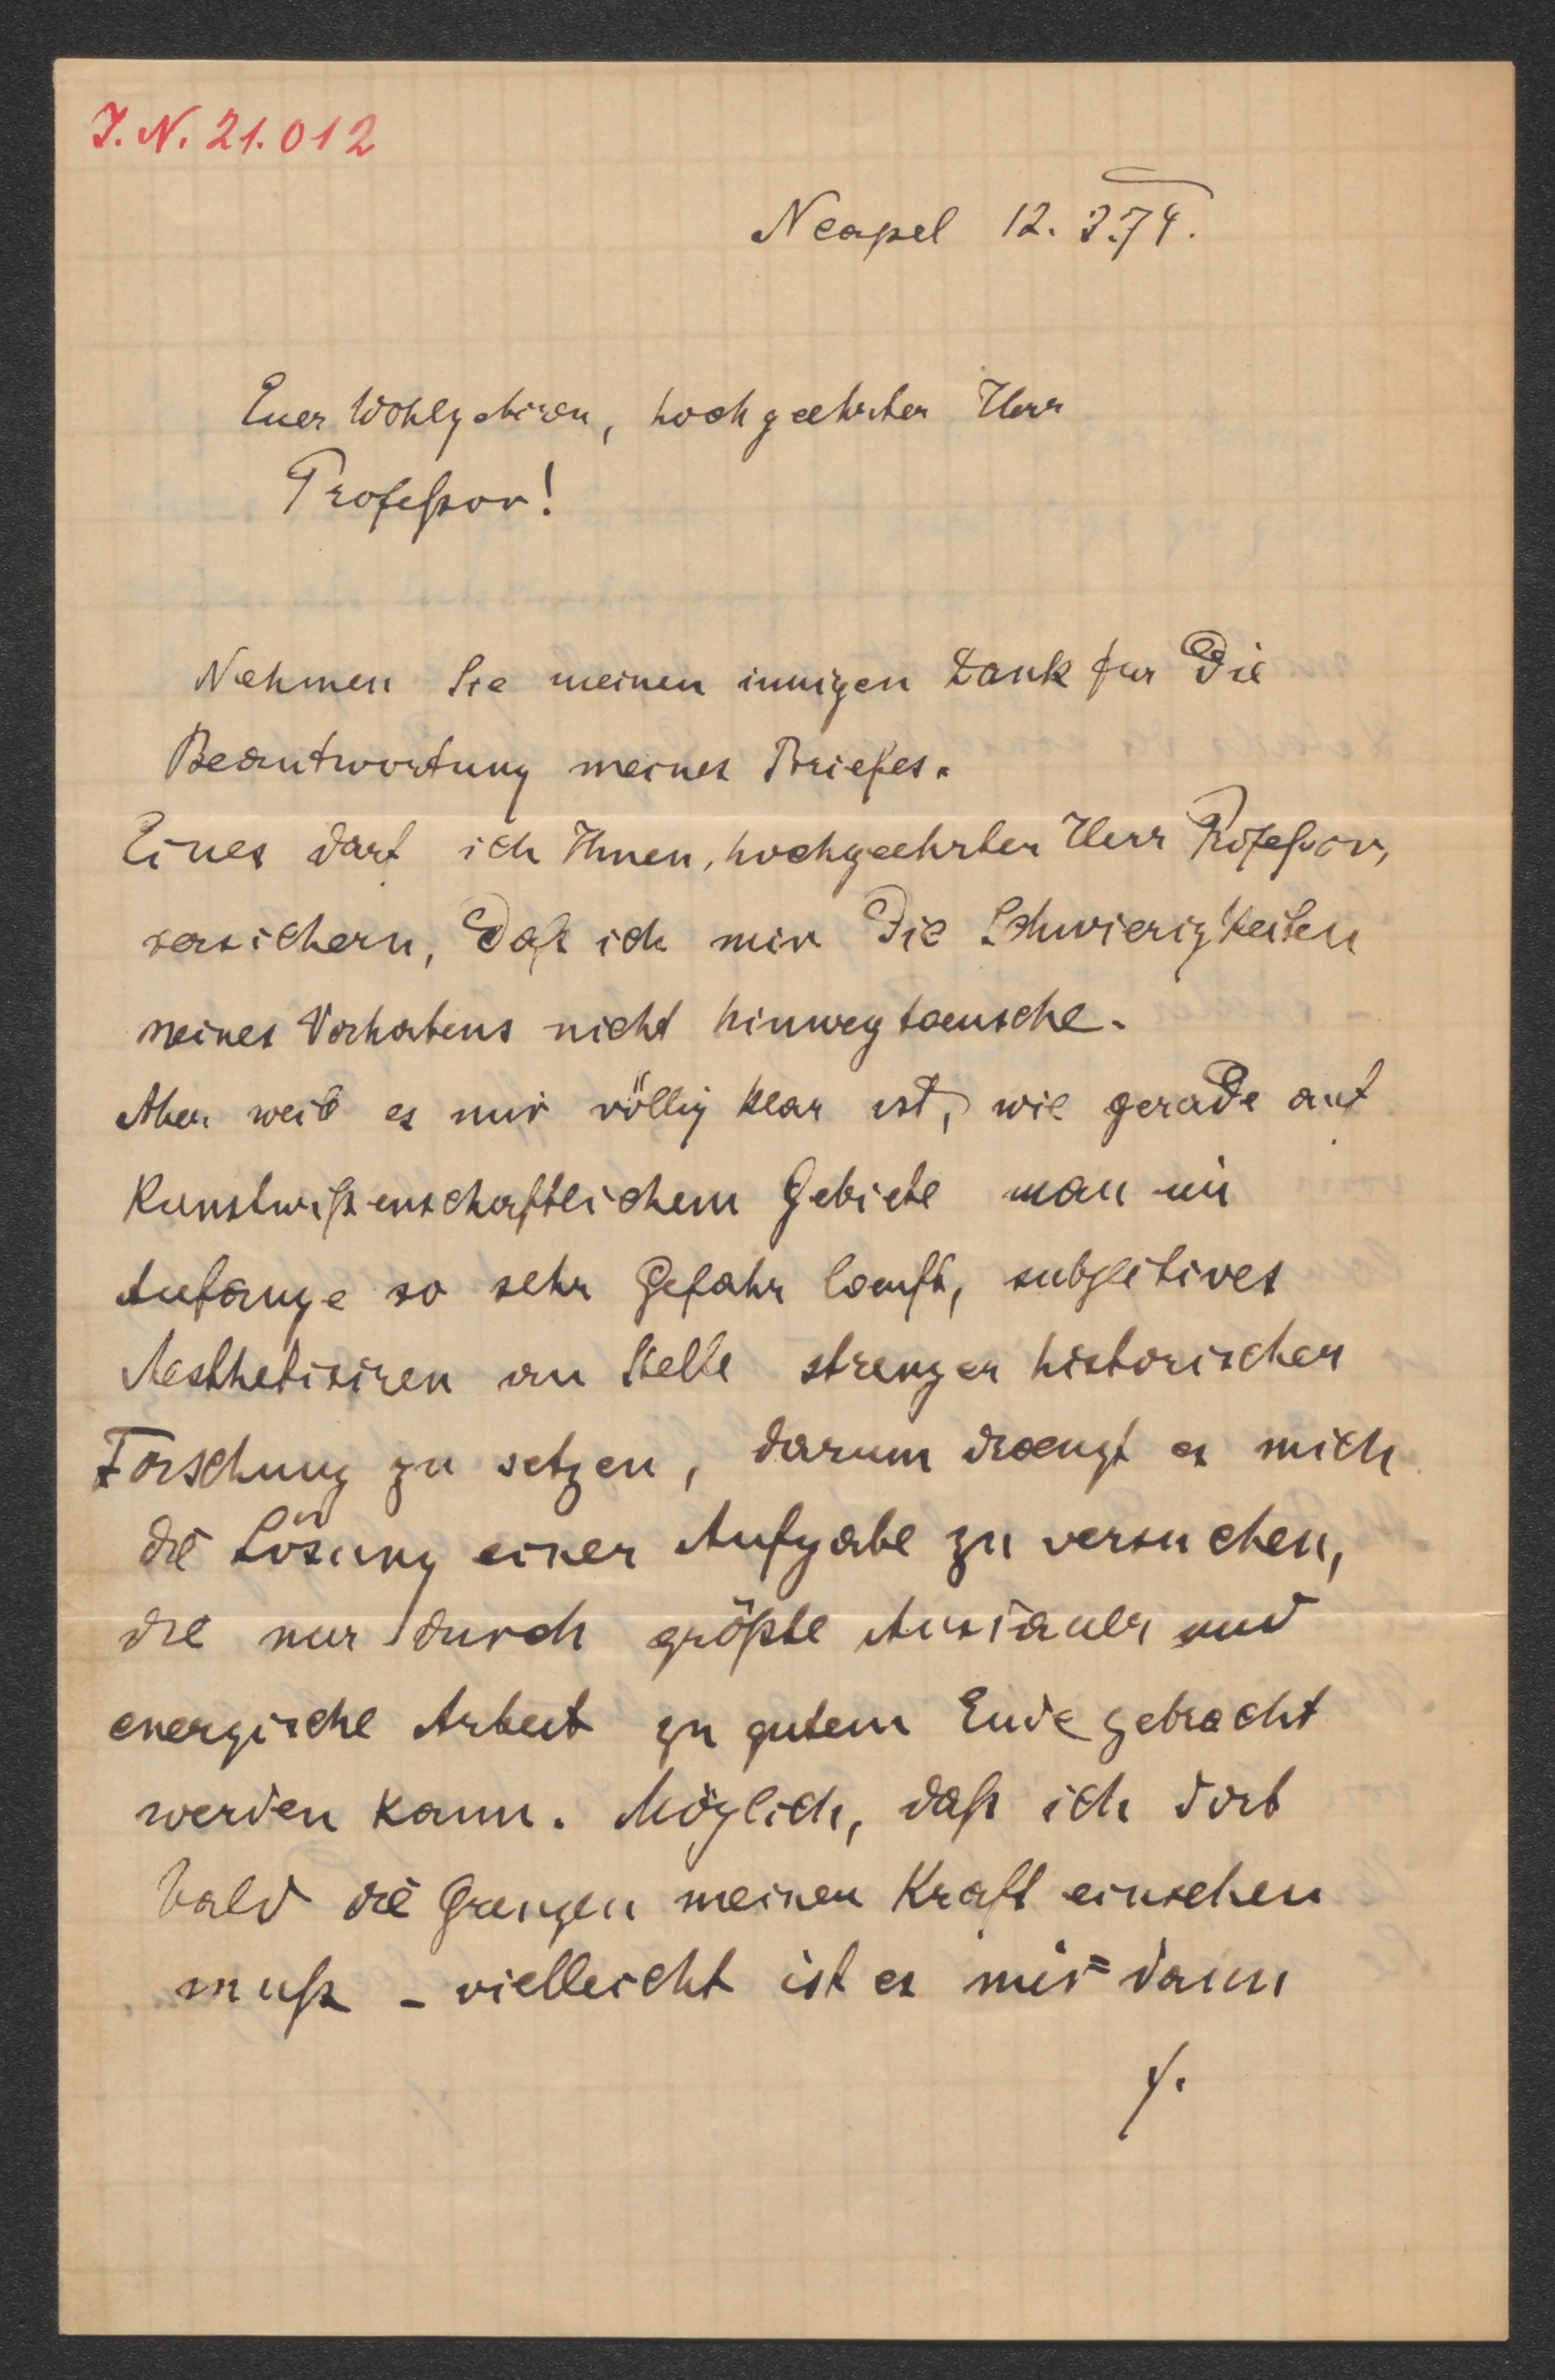 J. N. 21.012
Neapel 12. 3. 74.
Euer Wohlgeboren, hochgeehrter Herr
Professor!
Nehmen Sie meinen innigen Dank fur die
Beantwortung meines Briefes.
Eines darf ich Ihnen, hochgeehrter Herr Professor,
versichern, daß ich mir die Schwierigkeiten
meines Vorhabens nicht hinwegtaeusche.
Aber weil es mir völlig klar ist, wie gerade auf
kunstwißenschaftlichem Gebiete man im
Anfange so sehr Gefahr laeuft, subjectives
Aesthetisiren an Stelle strenger historischer
Forschung zu setzen, darum draengt es mich
die Lösung einer Aufgabe zu versuchen,
die nur durch größte Ausdauer und
energische Arbeit zu gutem Ende gebracht
werden kann. Möglich, daß ich dort
bald die Grenzen meiner Kraft einsehen
muß - vielleicht ist es mir dann
./.